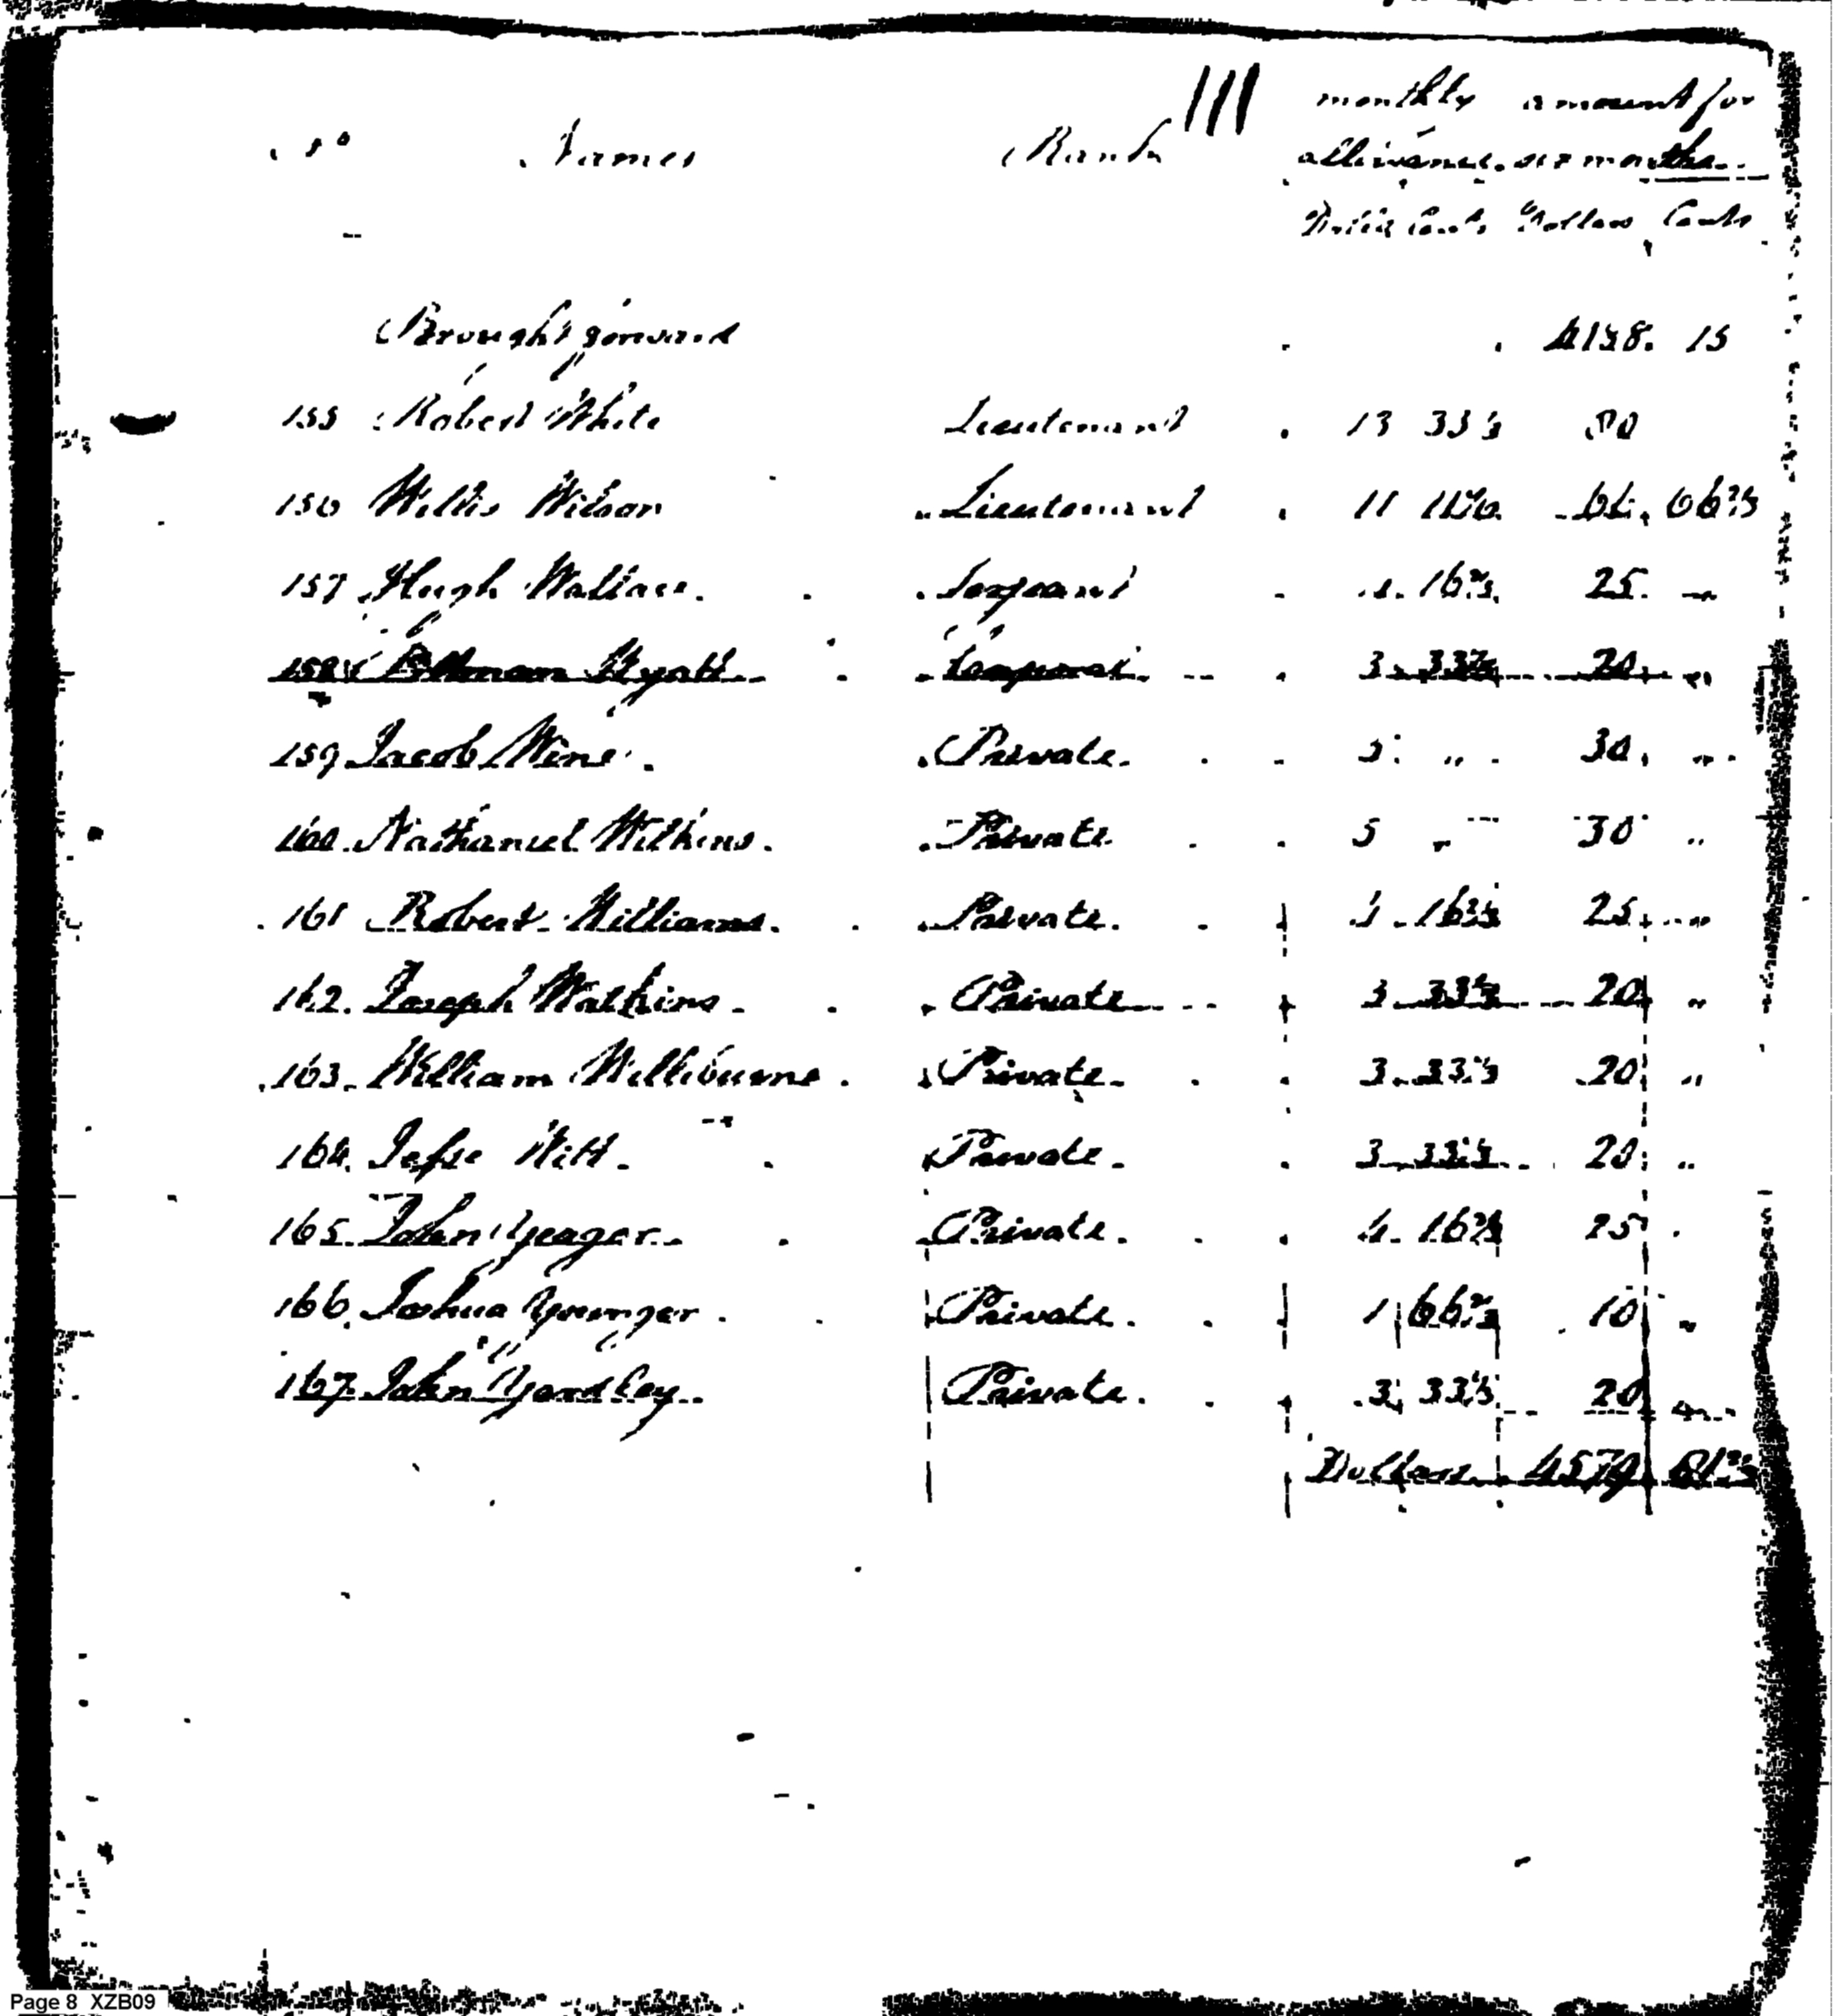 111
monthly amount for
No Names Rank allowance. six months.
Dollars Cents Dollars Cents
Brought forward 4158. 15
155 Robert White Lieutenant 13 33⅓ 80
156 Willis Wilson Lieutenant 11 11 66. 66⅔
157 Hugh Wallace. Sergeant 4. 16⅔ 25. "
158 Wyatt 3. 33⅓ 20 "
159 Jacob Wine. Private. 5. " 30. "
160. Nathaniel Wilkins. Private 5 " 30 "
161 Robert Williams. Private. 4. 16⅔ 25. "
162. Joseph Watkins. Private 3. 33⅓ 20 "
163. William Willibourne. Private. 3. 33⅓ 20 "
164. Jesse Witt. Private. 3. 33⅓ 20. "
165. John Yeager. Private. 4. 16⅔ 25
166. Joshua Younger. Private. 1 66⅔ 10 "
167. John Yardley. Private. 3. 33⅓ 20 "
Dollars. 4579. 81⅔
Page 8 XZB09